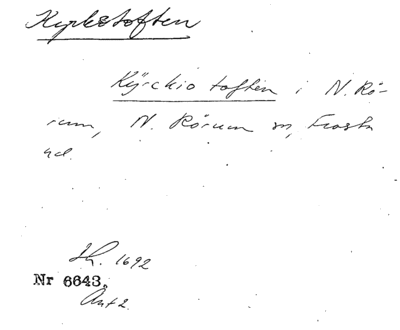 Kyrkstoften
Kÿrckio toften i N. Rö-
rum, N. Rörum sn, Frosta
hd.
Jb. 1692
Nr 6643.
Ant 2.